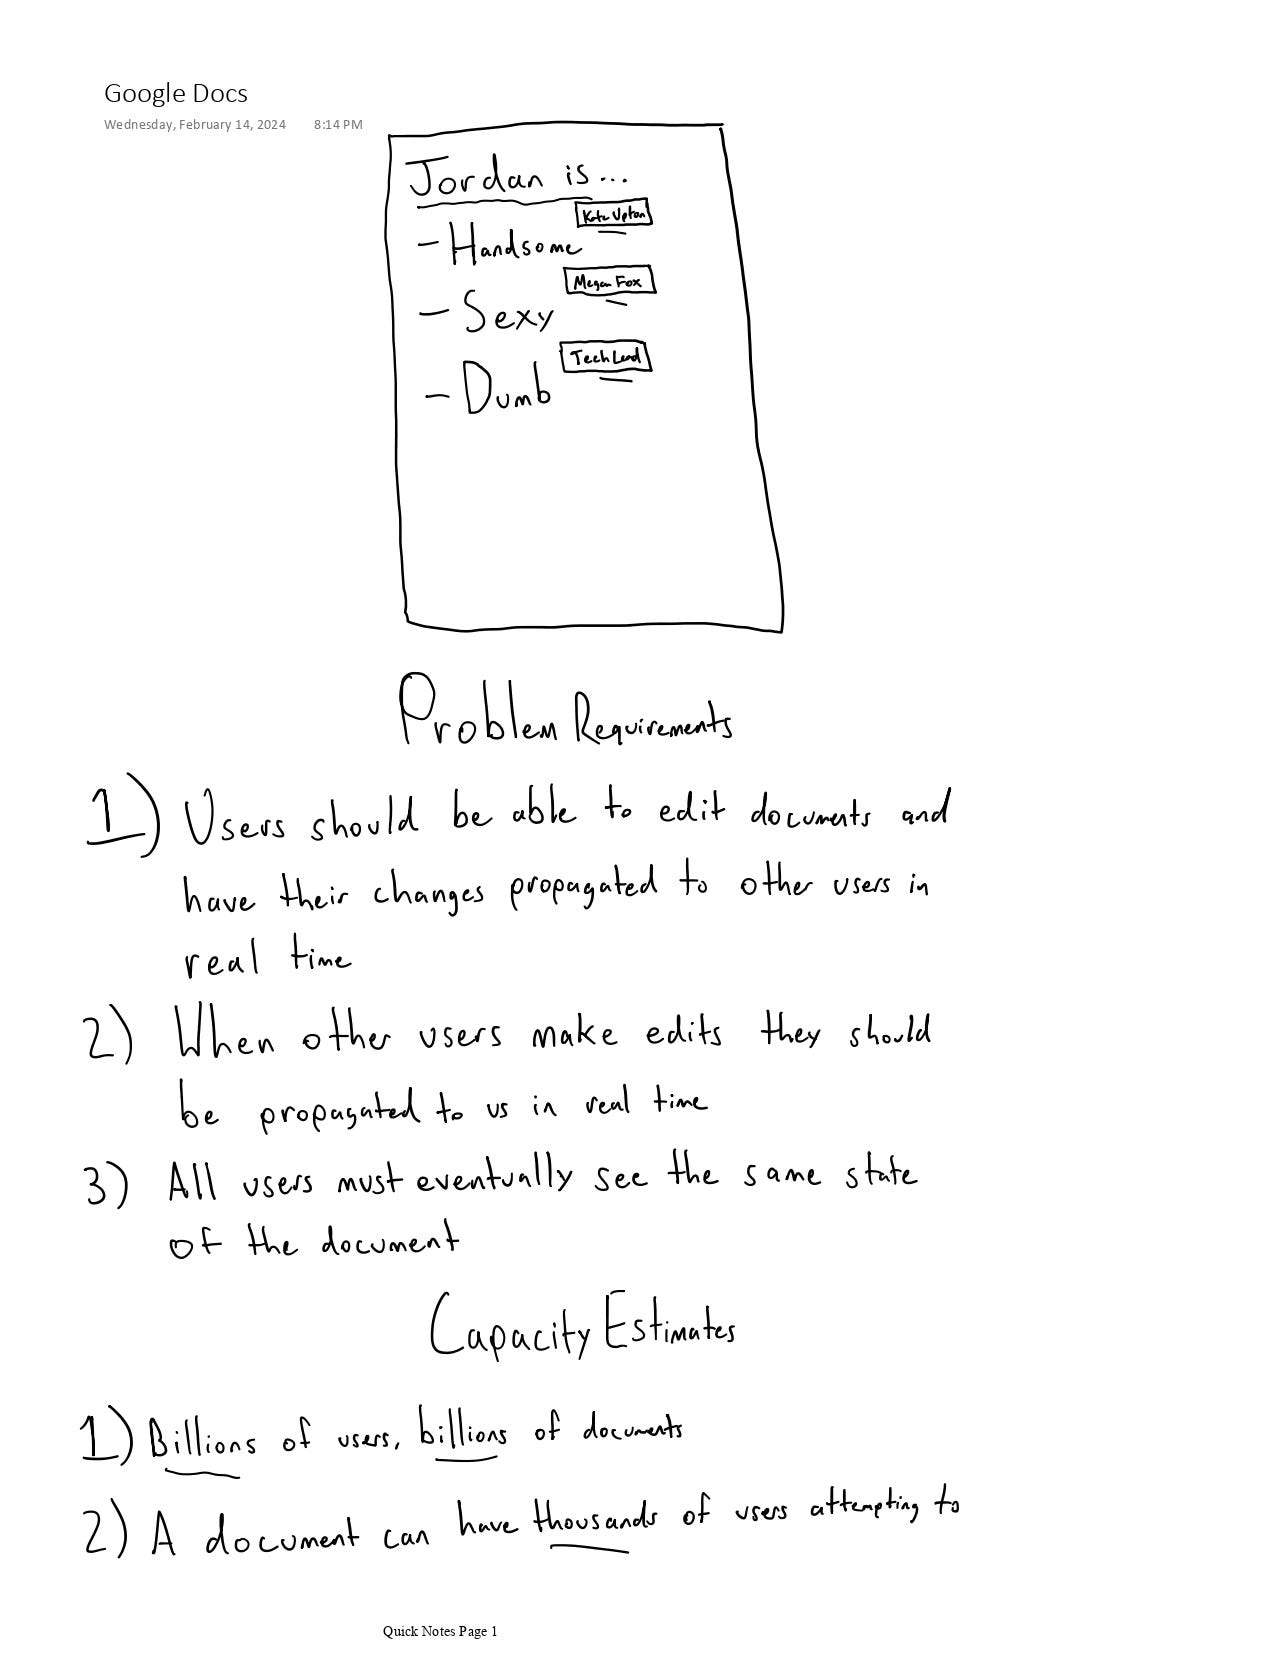 Google Docs
Wednesday, February 14, 2024 8:14 PM
Jordan is...
Kate Upton
- Handsome
Megan Fox
- Sexy
Tech Lead
- Dumb
Problem Requirements
1) Users should be able to edit documents and
have their changes propagated to other users in
real time
2) When other users make edits they should
be propagated to us in real time
3) All users must eventually see the same state
of the document
Capacity Estimates
1) Billions of users, billions of documents
2) A document can have thousands of users attempting to
Quick Notes Page 1